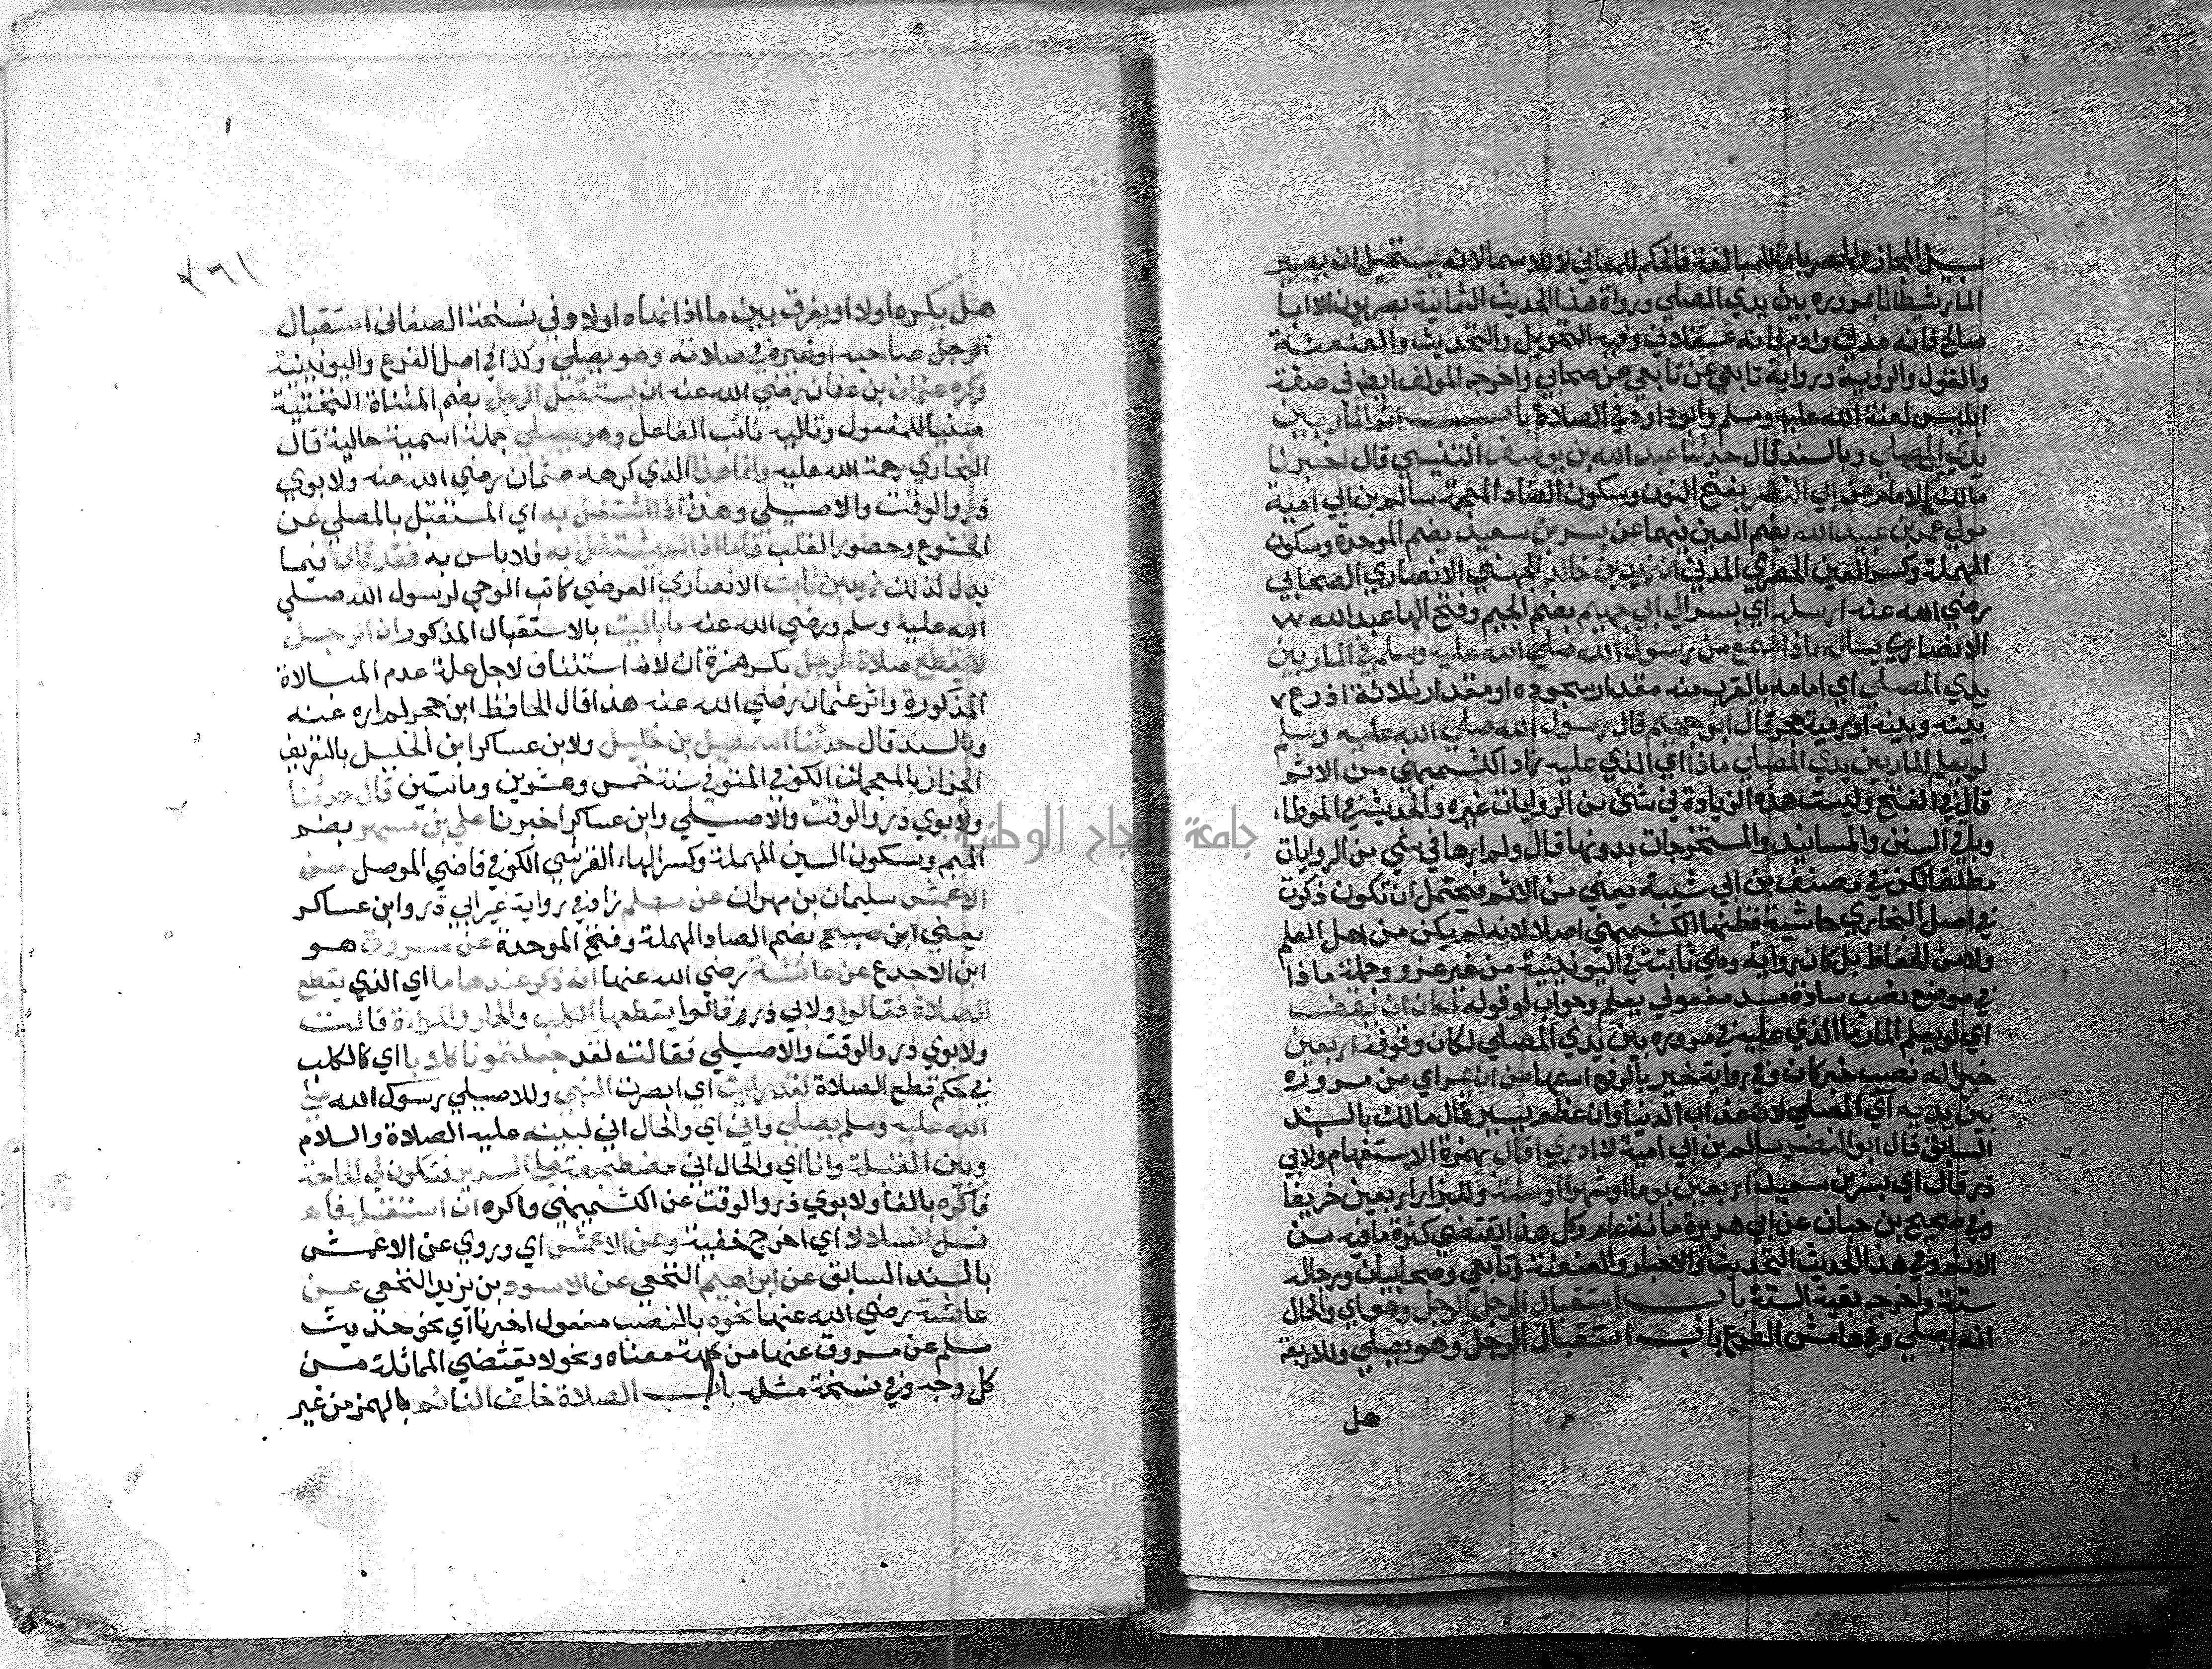 سبيل المجاز والحصر بانما للمبالغة فالحكم للمعاني لا للاسما لانه يستحيل ان يصير
المار شيطانا بمروره بين يدي المصلي ورواة هذا الحديث الثمانية بصريون الا ابا
صالح فانه مدني وادم فانه عسقلاني وفيه التحويل والتحديث والعنعنة
والقول والرؤية ورواية تابعي عن تابعي عن صحابي واخرجه المولف ايضم في صفة
ابليس لعنة الله عليه وسلم وابوداود في الصلاة باب اثم المار بين
يدي المصلي وبالسند قال حدثنا عبد الله بن يوسف التنيسي قال اخبرنا
مالك الامام عن ابي النضر بفتح النون وسكون الضاد المعجمة سالم بن ابي امية
مولي عمر بن عبيد الله بضم العين فيهما عن بسر بن سعيد بضم الموحدة وسكون
المهملة وكسر العين الحضرمي المدني ان زيد بن خالد الجهني الانصاري الصحابي
رضي الله عنه ارسله اي بسر الي ابي جهيم بضم الجيم وفتح الها عبد الله
الانصاري يساله ماذا سمع من رسول الله صلي الله عليه وسلم في المار بين
يدي المصلي اي امامه بالقرب منه مقدار سجوده او مقدار ثلاثة اذرع
بينه وبينه او رمية حجر قال ابو جهيم قال رسول الله صلي الله عليه وسلم
لو يعلم المار بين يدي المصلي ماذا اي الذي عليه زاد الكشميهني من الاثم
قال في الفتح وليست هذه الزيادة في شئ من الروايات غيره والحديث في الموطا،
وباقي السنن والمسانيد والمستخرجات بدونها قال ولم ارها في شي من الروايات
مطلقا لكن في مصنف بن ابي شيبة يعني من الاثم فيحتمل ان تكون ذكرت
في اصل البخاري حاشية فظنها الكشميهني اصلا لانه لم يكن من اهل العلم
ولا من الحفاظ بل كان راوية وهي ثابتة في اليونينية من غير عزو وجملة ماذا
في موضع نصب سادة مسد مفعولي يعلم وجواب لو قوله لكان ان يقف
اي لو يعلم المار ما الذي عليه في مروره بين يدي المصلي لكان وقوفه اربعين
خيرا له نصب خبر كان وفي رواية خير بالرفع اسمها من ان يمر اي من مروره
بين يديه اي المصلي لان عذاب الدنيا وان عظم يسير قال مالك بالسند
السابق قال ابو النضر سالم بن ابي امية لا ادري اقال بهمزة الاستفهام ولابي
ذر قال اي بسر بن سعيد اربعين يوما او شهرا او سنة وللبزار اربعين خريفا
وفي صحيح بن حبان عن ابي هريرة مائة عام وكل هذا يقتضي كثرة ما فيه من
الاثم وفي هذا الحديث التحديث والاخبار والعنعنة وتابعي وصحابيان ورجاله
ستة واخرجه بقية الستة باب استقبال الرجل الرجل وهو اي والحال
انه يصلي وفي هامش الفرع باب استقبال الرجل وهو يصلي وللاربعة
هل
٢٦١
هل يكره اولا او يفرق بين ما اذا الهاه اولا وفي نسخة الصغاني استقبال
الرجل صاحبه او غيره في صلاته وهو يصلي وكذا في اصل الفرع واليونينية
وكره عثمان بن عفان رضي الله عنه ان يستقبل الرجل بضم المثناة التحتية
مبنيا للمفعول وتاليه نائب الفاعل وهو يصلي جملة اسمية حالية قال
البخاري رحمة الله عليه وانما هذا الذي كرهه عثمان رضي الله عنه ولابوي
ذر والوقت والاصيلي وهذا اذا اشتغل به اي المستقبل بالمصلي عن
الخشوع وحضور القلب فاما اذا لم يشتغل به فلا باس به فقد قال فيما
يدل لذلك زيد بن ثابت الانصاري الفرضي كاتب الوحي لرسول الله صلي
الله عليه وسلم ورضي الله عنه ما باليت بالاستقبال المذكور ان الرجل
لا يقطع صلاة الرجل بكسر همزة ان لانه استئناف لاجل علة عدم المبالاة
المذكورة واثر عثمان رضي الله عنه هذا قال الحافظ ابن حجر لم اره عنه
وبالسند قال حدثنا اسمعيل بن خليل ولابن عساكر ابن الخليل بالتعريف
الخزاز بالمعجمات الكوفي المتوفي سنة خمس وعشرين ومائتين قال حدثنا
ولابوي ذر والوقت والاصيلي وابن عساكر اخبرنا علي بن مسهر بضم
الميم وسكون السين المهملة وكسر الهاء القرشي الكوفي قاضي الموصل عن
الاعمش سليمان بن مهران عن مسلم زاد في رواية غير ابي ذر وابن عساكر
يعني ابن صبيح بضم الصاد المهملة وفتح الموحدة عن مسروق هو
ابن الاجدع عن عائشة رضي الله عنها انه ذكر عندها ما اي الذي يقطع
الصلاة فقالوا ولابي ذر وقالوا يقطعها الكلب والحمار والمراة قالت
ولابوي ذر والوقت والاصيلي فقالت لقد جعلتمونا كلابا اي كالكلب
في حكم قطع الصلاة لقد رايت اي ابصرت النبي وللاصيلي رسول الله صلي
الله عليه وسلم يصلي واني اي والحال اني لبينه عليه الصلاة والسلام
وبين القبلة وانا اي والحال اني مضطجعة علي السرير فتكون لي الحاجة
فاكره بالفا ولابوي ذر والوقت عن الكشميهني واكره ان استقبله فا
نسل انسلالا اي اخرج خفية وعن الاعمش اي وروي عن الاعمش
بالسند السابق عن ابراهيم النخعي عن الاسود بن يزيد النخعي عن
عائشة رضي الله عنها نحوه بالنصب مفعول اخبرنا اي نحو حديث
مسلم عن مسروق عنها من جهة معناه ونحو لا يقتضي المماثلة من
كل وجه وفي نسخة مثله باب الصلاة خلف النائم بالهمز من غير
جامعة النجاح الوطنية